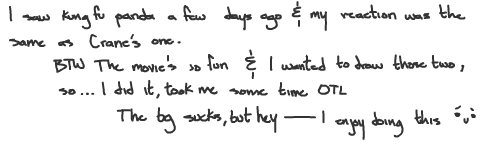 I saw Kung fu panda a few days ago & my reaction was the
same as Crane's one.
BTW The movie's so fun & I wanted to draw those two,
so... I did it, took me some time OTL
The bg sucks, but hey — I enjoy doing this